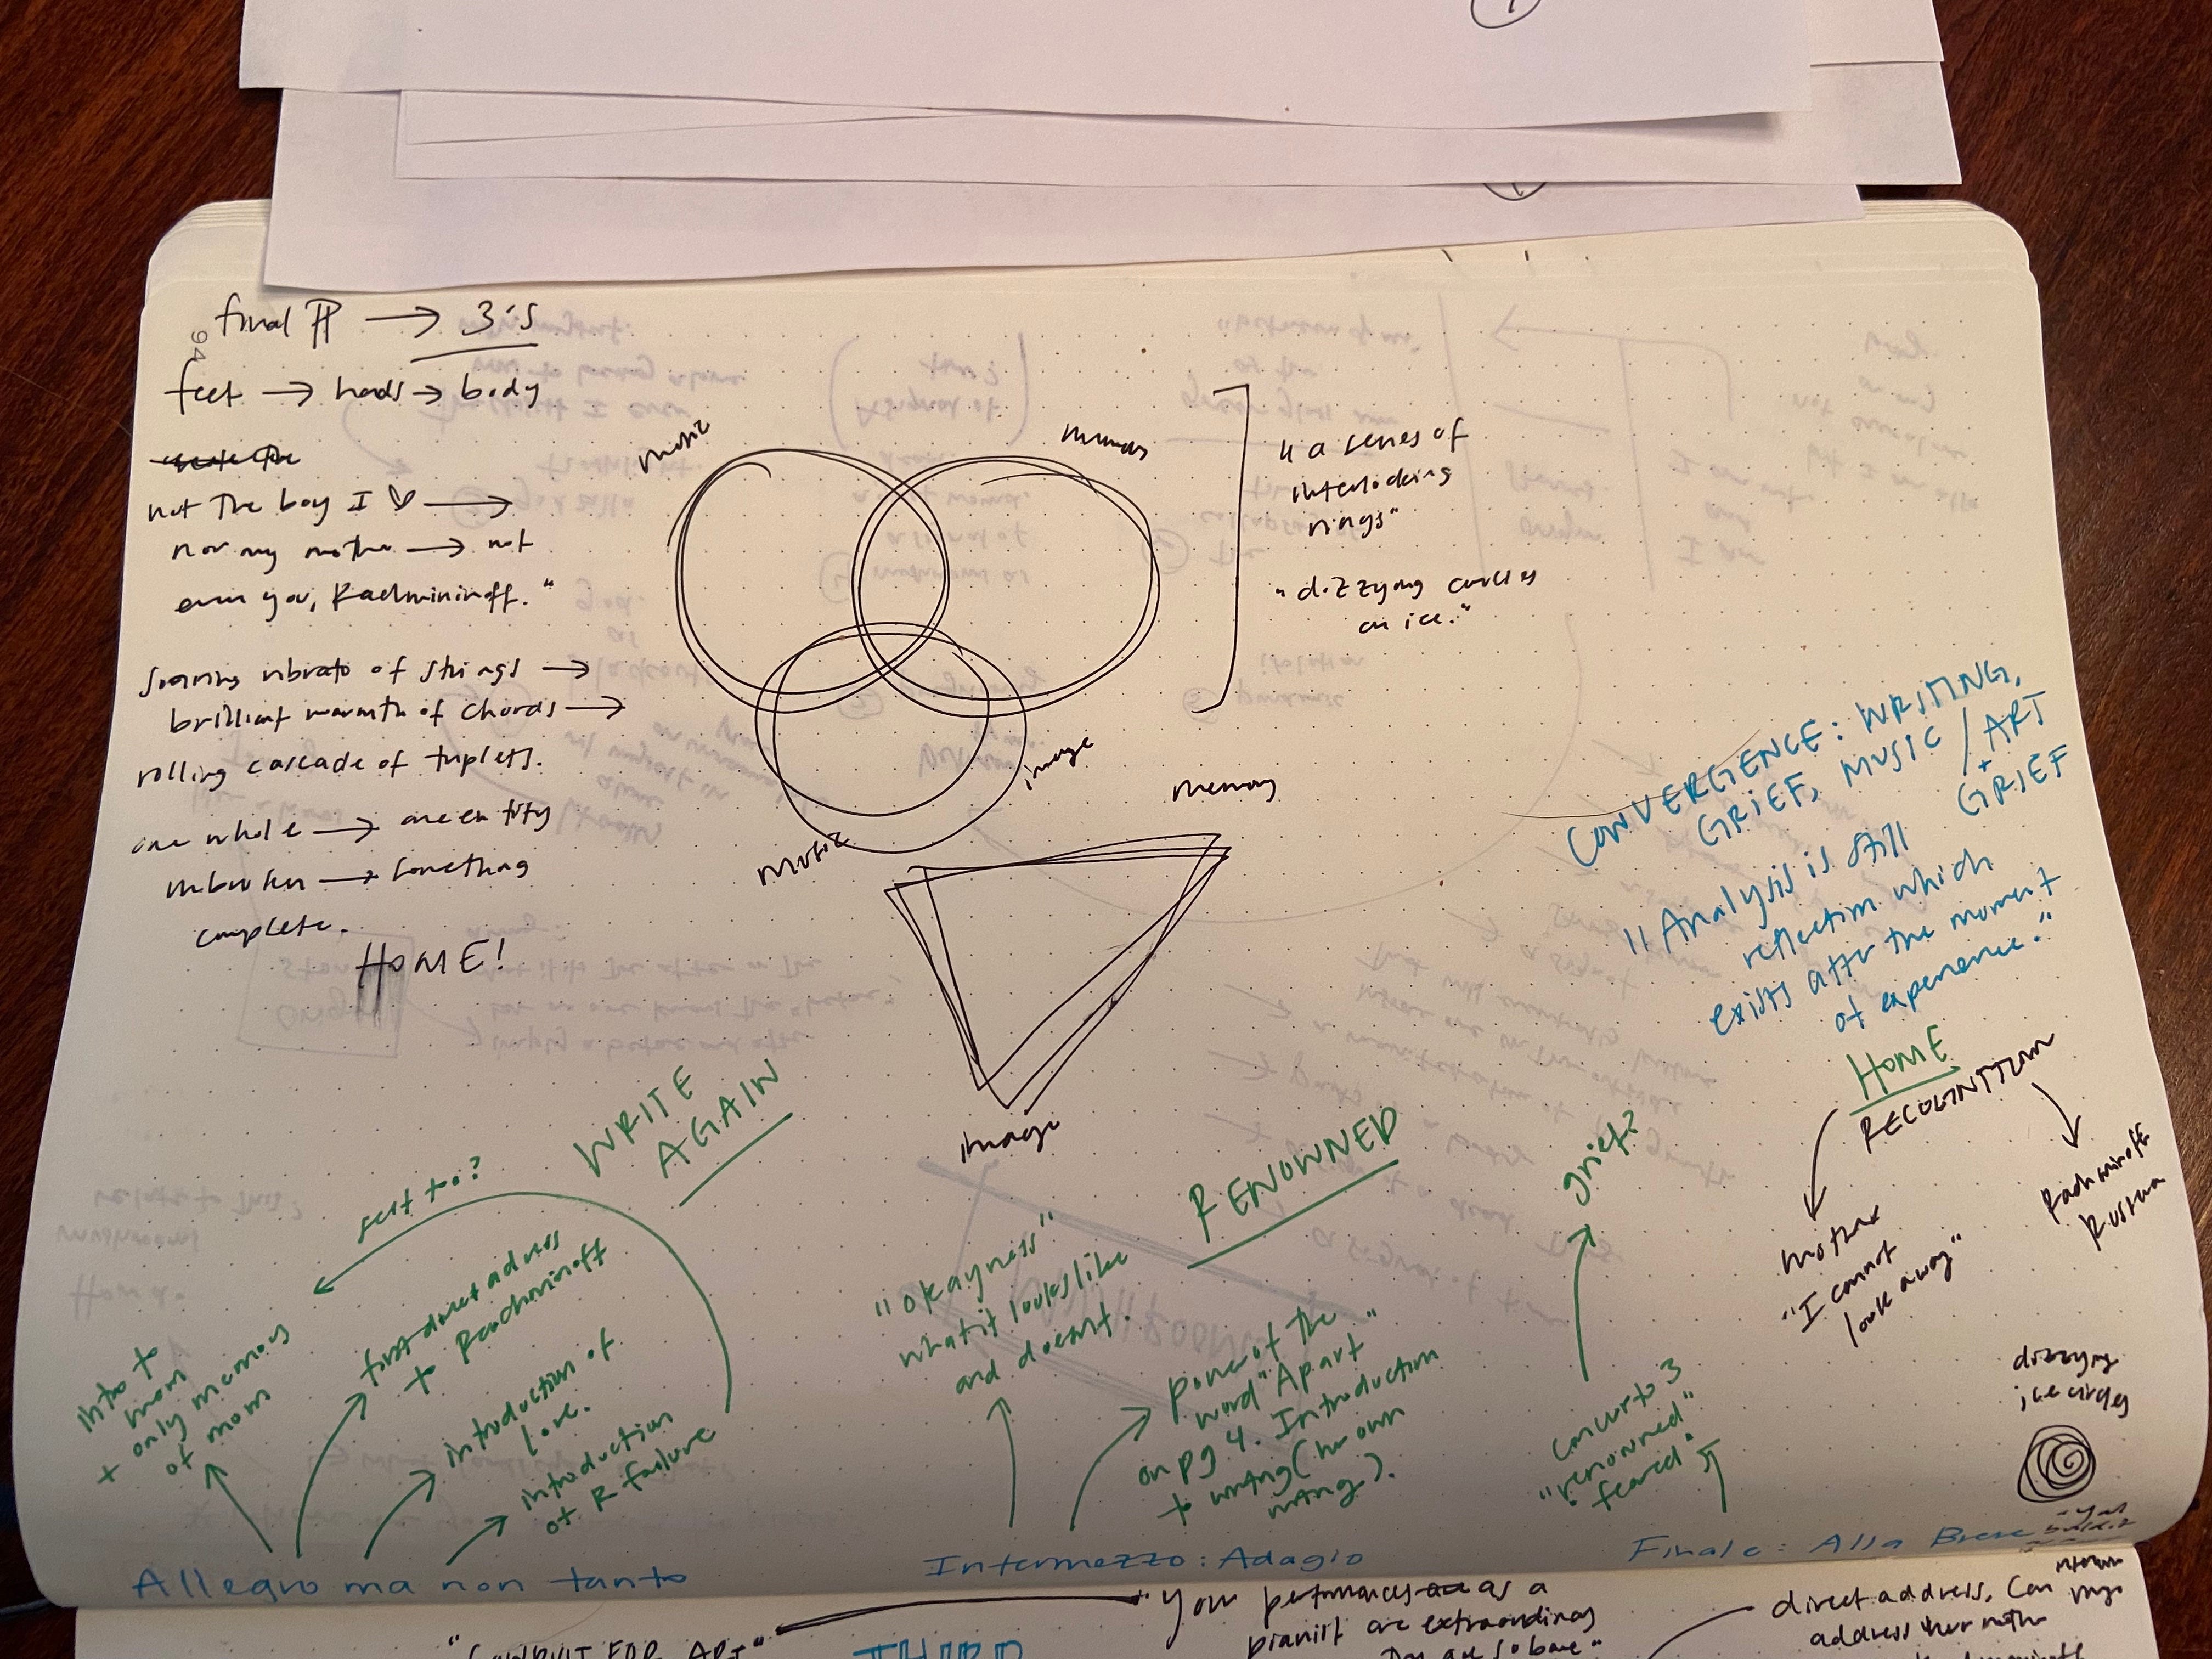 94
final ¶ → 3's
feet → hands → body
not the boy I ♡ →
nor my mother → not
even you, Rachmininoff."
soaring vibrato of strings →
brilliant warmth of chords →
rolling cascade of triplets.
one whole → one entity
unbroken → something
complete.
HOME!
music
memory
image
"a series of
interlocking
rings"
"dizzying circles
on ice."
music
memory
image
CONVERGENCE: WRITING,
GRIEF, MUSIC / ART
+
GRIEF
"Analysis is still
reflection which
exists after the moment
of experience."
HOME
RECOGNITION
mother
"I cannot
look away"
Rachminoff
Russia
dizzying
ice circles
WRITE
AGAIN
sect to?
intro to
mom
+ only memories
of mom
first direct address
to Rachminoff
introduction of
love.
introduction
of R failure
RENOWNED
"okayness"
what it looks like
and doesn't.
power of the
word "Apart"
on pg 4. Introduction
to writing (her own
writing).
grief?
concerto 3
"renowned"
"feared"
Allegro ma non tanto
Intermezzo: Adagio
Finale: Alla Breve
"CONDUIT FOR ART"
THIRD
"Your performances as a
pianist are extraordinary
They are so bare"
direct address, Can
address her mother